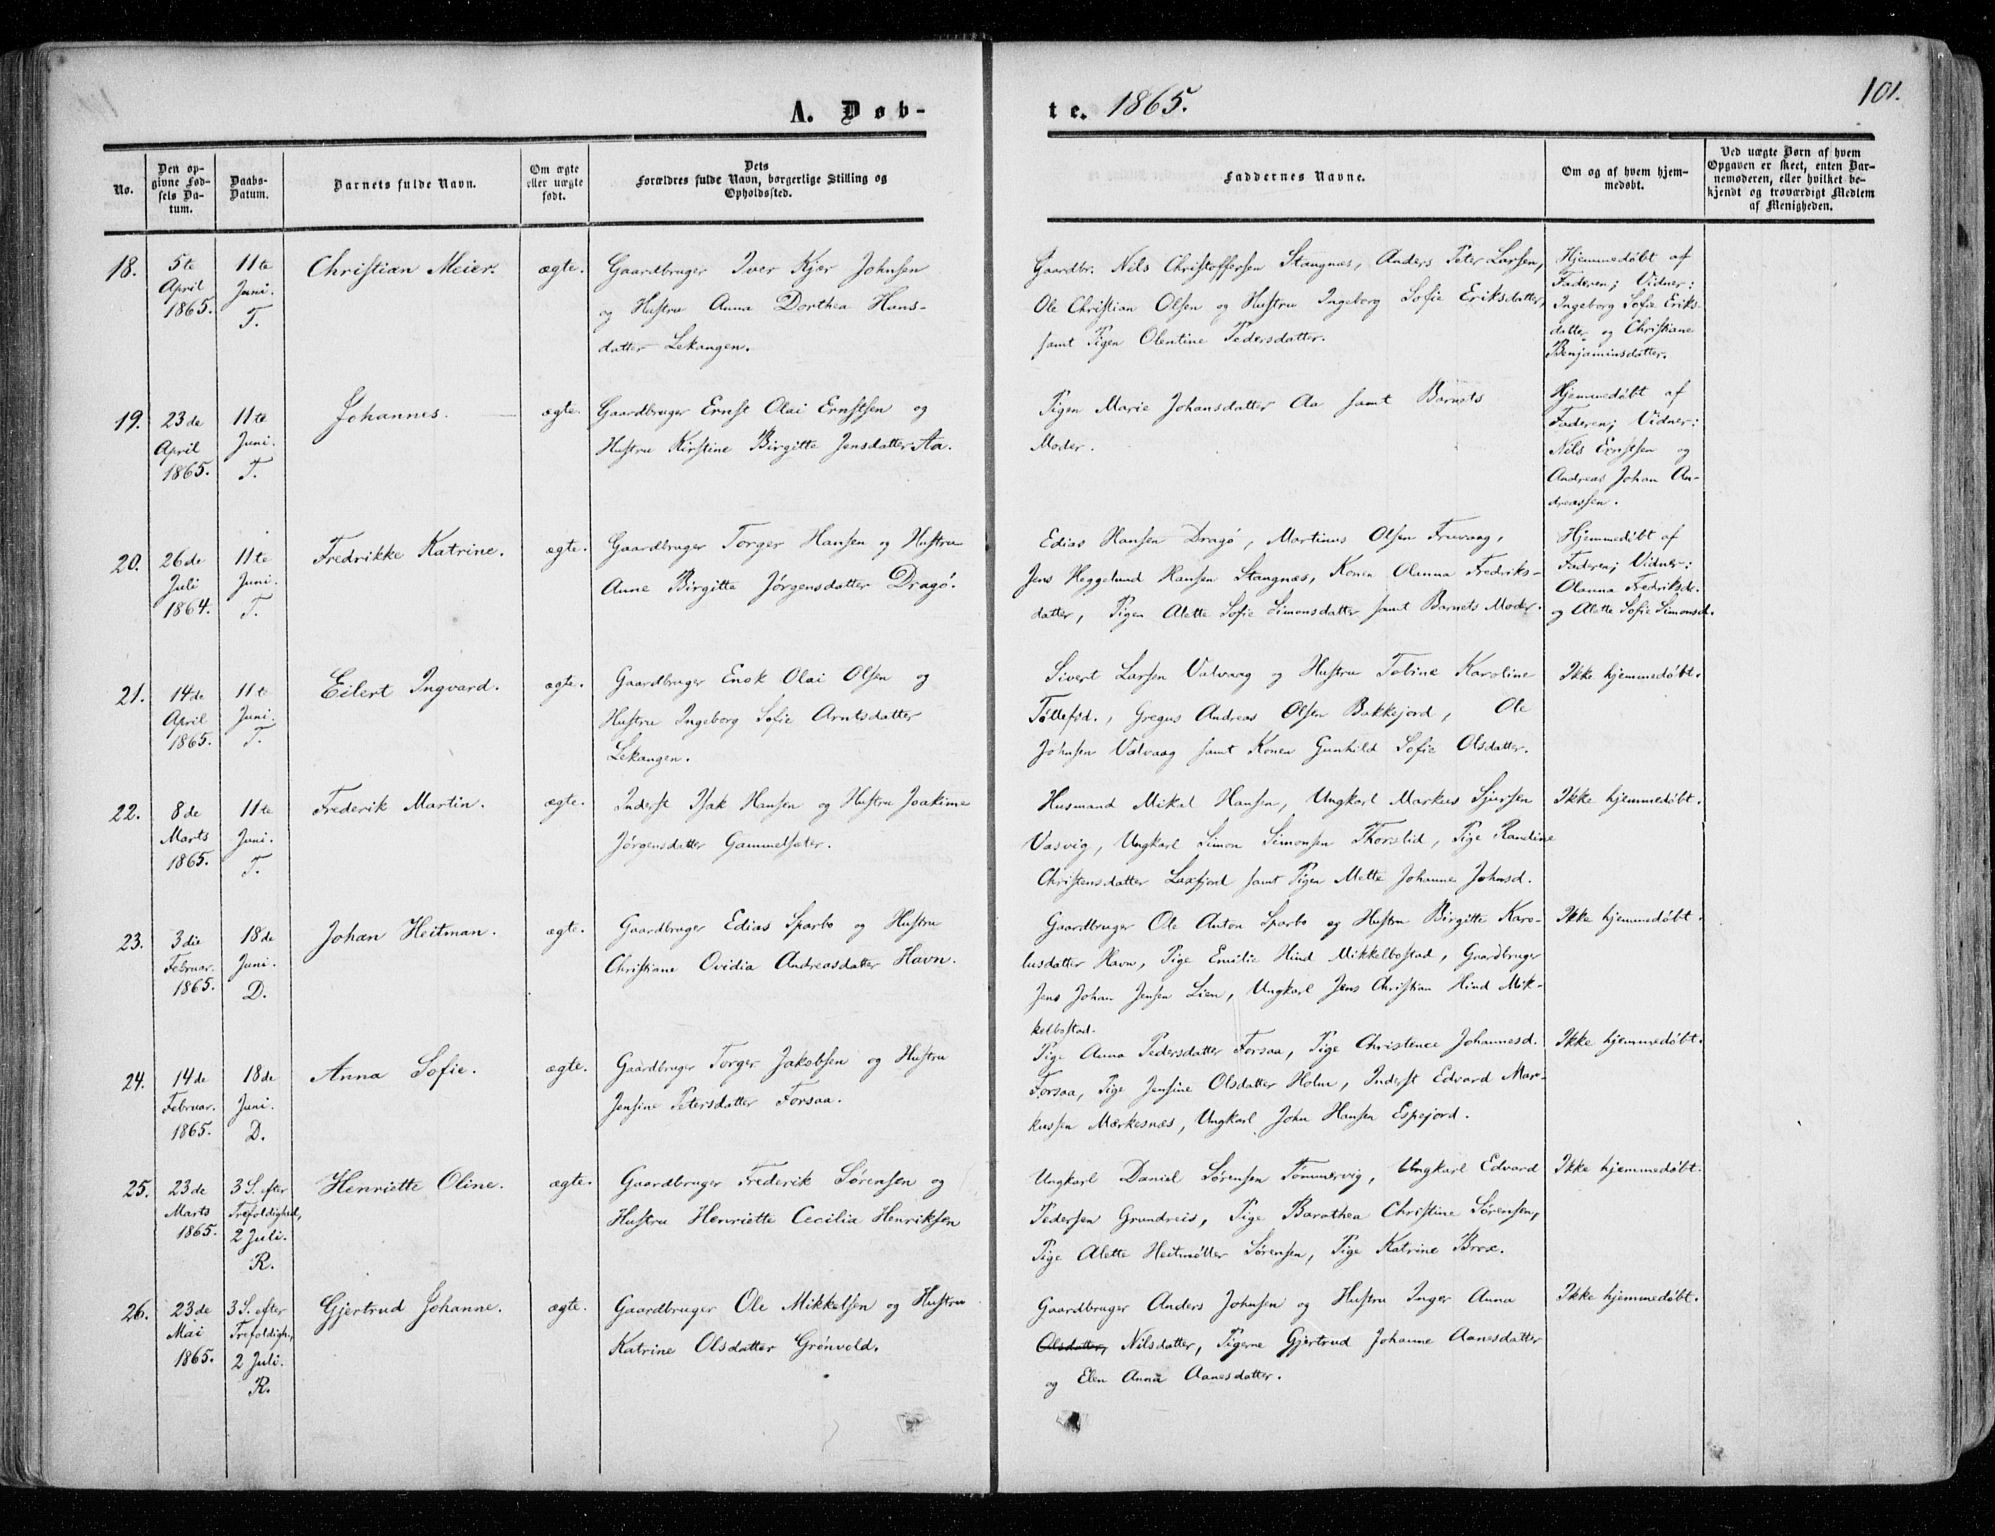 A. Døb-
te. 1865.
101.
No.
Den op-
givne Fød-
sels Da-
tum.
Daabs-
Datum.
Barnets fulde Navn.
Om ægte
eller uægte
født.
Dets
Forældres fulde Navn, borgerlige Stilling og
Opholdssted.
Faddernes Navne.
Om og af hvem hjem-
medøbt.
Ved uægte Børn af hvem
Opgaven er skeet, enten Bar-
nemoderen, eller hvilket be-
kjendt og troværdigt Medlem
af Menigheden.
18.
5te
April
1865.
11te
Juni.
T.
Christian Meier.
ægte.
Gaardbruger Iver Kjær Johnsen
og Hustru Anna Dorthea Hans-
datter Lekangen.
Gaardbr. Nils Christoffersen Stangnes, Anders Peter Larsen,
Ole Christian Olsen og Hustru Ingeborg Sofie Eriksdatter,
samt Pigen Olentine Pedersdatter.
Hjemmedøbt af
Faderen; Vidner:
Ingeborg Sofie Eriks-
datter og Christiane
Benjaminsdatter.
19.
23de
April
1865.
11te
Juni.
T.
Johannes.
ægte.
Gaardbruger Ernst Olai Ernstsen og
Hustru Kirstine Birgitte Jensdatter Aa.
Pigen Marie Johansdatter Aa samt Barnets
Moder.
Hjemmedøbt af
Faderen; Vidner:
Nils Ernstsen og
Andreas Johan An-
dreassen.
20.
26de
Juli
1864.
11te
Juni.
T.
Fredrikke Katrine.
ægte.
Gaardbruger Torger Hansen og Hustru
Anne Birgitte Jørgensdatter Dragø.
Edias Hansen Dragø, Martinus Olsen Fruvaag,
Jens Heggelund Hansen Stangnæs, Konen Olanna Fredriks-
datter, Pigen Alette Sofie Simonsdatter samt Barnets Moder.
Hjemmedøbt af
Faderen; Vidner:
Olanna Fredriksd.
og Alette Sofie Simonsd.
21.
14de
April
1865.
11te
Juni.
T.
Eilert Ingvard.
ægte.
Gaardbruger Enok Olai Olsen og
Hustru Ingeborg Sofie Arntsdatter
Lekangen.
Sivert Larsen Valvaag og Hustru Tobine Karoline
Tøllefsd., Gregus Andreas Olsen Bakkejord, Ole
Johnsen Valvaag samt Konen Gunhild Sofie Olsdatter.
Ikke hjemmedøbt.
22.
8de
Marts
1865.
11te
Juni.
T.
Frederik Martin.
ægte.
Inderst Isak Hansen og Hustru Joakime
Jørgensdatter Gammelsæter.
Husmand Mikal Hansen, Ungkarl Markus Sjursen
Vasvig, Ungkarl Simon Simonsen Thorslid, Pige Randine
Christensdatter Laxfjord samt Pigen Mette Johanne Johnsd.
Ikke hjemmedøbt.
23.
3die
Februar.
1865.
18de
Juni.
D.
Johan Heitman.
ægte.
Gaardbruger Edias Sparbo og Hustru
Christiane Ovidia Andreasdatter Havn.
Gaardbruger Ole Anton Sparbo og Hustru Birgitte Karo-
lusdatter Havn, Pige Emilie Hind Mikkelbostad, Gaardbruger
Jens Johan Jensen Lien, Ungkarl Jens Christian Hind Mik-
kelbostad.
Ikke hjemmedøbt.
24.
14de
Februar.
1865.
18de
Juni.
D.
Anna Sofie.
ægte.
Gaardbruger Torger Jakobsen og Hustru
Jensine Petersdatter Forsaa.
Pige Anna Pedersdatter Forsaa, Pige Christence Johannesd.
Forsaa, Pige Jensine Olsdatter Holm, Inderst Edvard Mar-
kussen Mærkesnæs, Ungkarl John Hansen Espejord.
Ikke hjemmedøbt.
25.
23de
Marts
1865.
3 S. efter
Trefoldighed,
2 Juli.
R.
Henriette Oline.
ægte.
Gaardbruger Frederik Sørensen og
Hustru Henriette Cecilia Henriksen
Ungkarl Daniel Sørensen Tømmervig, Ungkarl Edvard
Pedersen Grundreis, Pige Barothea Christine Sørensen,
Pige Alette Heitmøtter Sørensen, Pige Katrine Brox.
Ikke hjemmedøbt.
26.
23de
Mai
1865.
3 S. efter
Trefoldigh.,
2 Juli.
R.
Gjertrud Johanne.
ægte.
Gaardbruger Ole Mikkelsen og Hustru
Katrine Olsdatter Grønvold.
Gaardbruger Anders Johnsen og Hustru Inger Anna
Olsdatter, Nilsdatter, Pigerne Gjertrud Johanne Aanesdatter
og Elen Anna Aanesdatter.
Ikke hjemmedøbt.